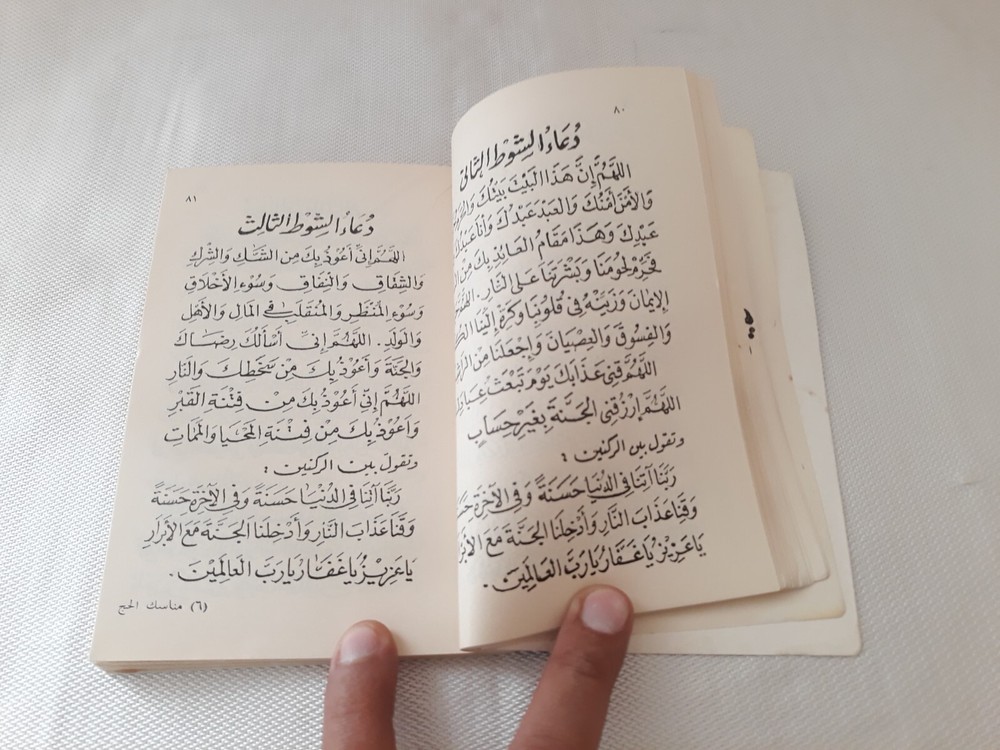 ٨٠
دُعَاءُ الشَّوْطِ الثَّانِي
اللَّهُمَّ إِنَّ هَذَا الْبَيْتَ بَيْتُكَ
وَالأَمْنَ أَمْنُكَ وَالْعَبْدَ عَبْدُكَ وَأَنَا عَبْدُكَ
عَبْدِكَ وَهَذَا مَقَامُ الْعَائِذِ بِكَ مِنَ
فَحَرِّمْ لُحُومَنَا وَبَشَرَتَنَا عَلَى النَّارِ .
الإِيمَانَ وَزَيِّنْهُ فِي قُلُوبِنَا وَكَرِّهْ إِلَيْنَا
وَالْفُسُوقَ وَالْعِصْيَانَ وَاجْعَلْنَا مِنَ
اللَّهُمَّ قِنِي عَذَابَكَ يَوْمَ تَبْعَثُ
اللَّهُمَّ ارْزُقْنِي الْجَنَّةَ بِغَيْرِ حِسَابٍ
وتقول بين الركنين :
رَبَّنَا آتِنَا فِي الدُّنْيَا حَسَنَةً وَفِي الآخِرَةِ
وَقِنَا عَذَابَ النَّارِ وَأَدْخِلْنَا الْجَنَّةَ مَعَ
يَا عَزِيزُ يَا غَفَّارُ يَا رَبَّ الْعَالَمِينَ .
٨١
دُعَاءُ الشَّوْطِ الثَّالِثِ
اللَّهُمَّ إِنِّي أَعُوذُ بِكَ مِنَ الشَّكِّ وَالشِّرْكِ
وَالشِّقَاقِ وَالنِّفَاقِ وَسُوءِ الأَخْلَاقِ
وَسُوءِ الْمَنْظَرِ وَالْمُنْقَلَبِ فِي الْمَالِ وَالأَهْلِ
وَالْوَلَدِ . اللَّهُمَّ إِنِّي أَسْأَلُكَ رِضَاكَ
وَالْجَنَّةَ وَأَعُوذُ بِكَ مِنْ سَخَطِكَ وَالنَّارِ
اللَّهُمَّ إِنِّي أَعُوذُ بِكَ مِنْ فِتْنَةِ الْقَبْرِ
وَأَعُوذُ بِكَ مِنْ فِتْنَةِ الْمَحْيَا وَالْمَمَاتِ
وتقول بين الركنين :
رَبَّنَا آتِنَا فِي الدُّنْيَا حَسَنَةً وَفِي الآخِرَةِ حَسَنَةً
وَقِنَا عَذَابَ النَّارِ وَأَدْخِلْنَا الْجَنَّةَ مَعَ الأَبْرَارِ
يَا عَزِيزُ يَا غَفَّارُ يَا رَبَّ الْعَالَمِينَ .
(٦) مناسك الحج